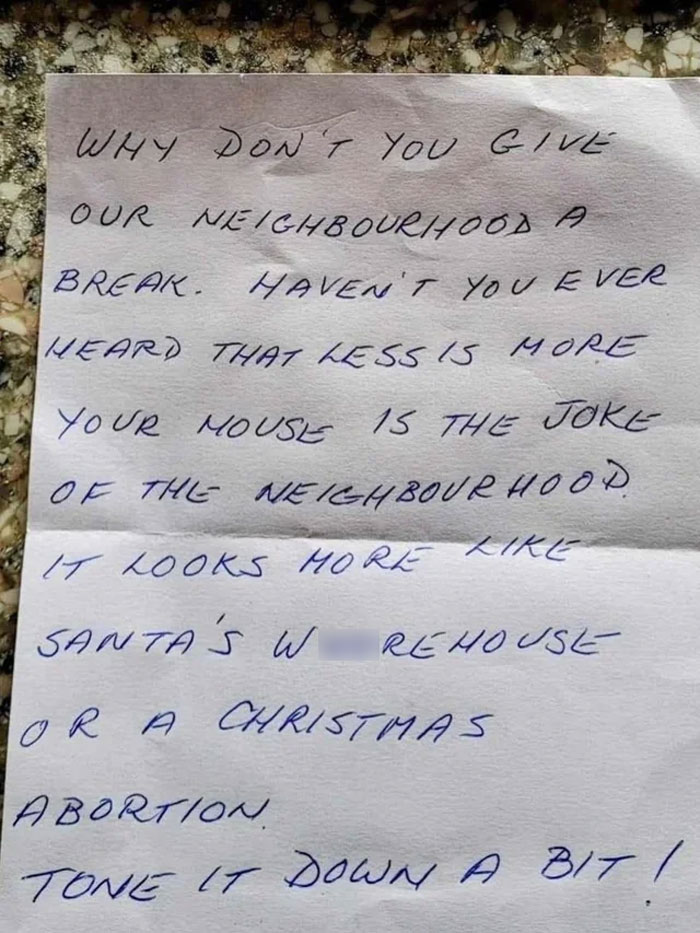 WHY DON'T YOU GIVE
OUR NEIGHBOURHOOD A
BREAK. HAVEN'T YOU EVER
HEARD THAT LESS IS MORE
YOUR HOUSE IS THE JOKE
OF THE NEIGHBOURHOOD.
IT LOOKS MORE LIKE
SANTA'S W REHOUSE
OR A CHRISTMAS
ABORTION.
TONE IT DOWN A BIT!